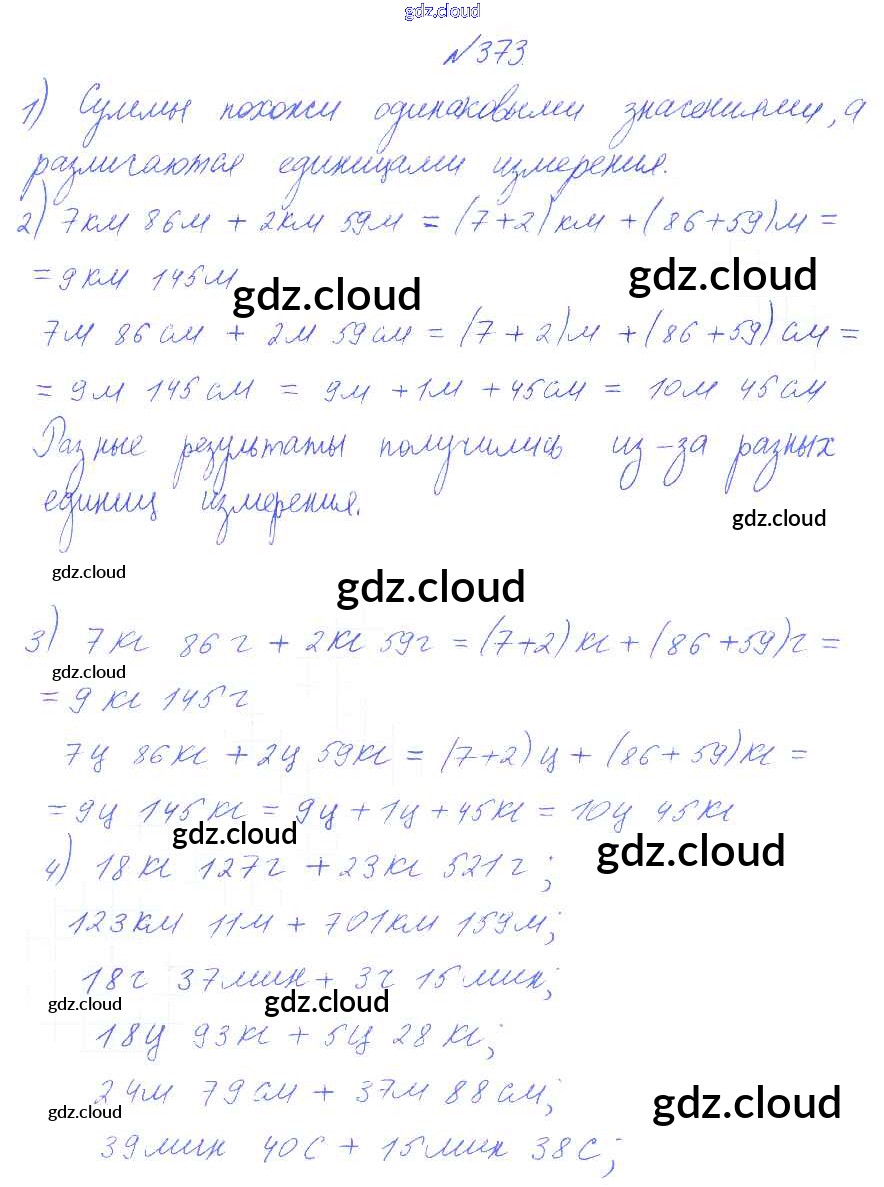 gdz.cloud
№373.
1) Суммы похожи одинаковыми значениями, а
различаются единицами измерения.
2) 7км 86м + 2км 59м = (7+2)км + (86+59)м =
= 9км 145м
gdz.cloud gdz.cloud
7м 86см + 2м 59см = (7+2)м + (86+59)см =
= 9м 145см = 9м + 1м + 45см = 10м 45см
Разные результаты получились из-за разных
единиц измерения.
gdz.cloud
gdz.cloud gdz.cloud
3) 7кг 86г + 2кг 59г = (7+2)кг + (86+59)г =
gdz.cloud
= 9кг 145г
7ц 86кг + 2ц 59кг = (7+2)ц + (86+59)кг =
= 9ц 145кг = 9ц + 1ц + 45кг = 10ц 45кг
gdz.cloud gdz.cloud
4) 18кг 127г + 23кг 521г;
123км 11м + 701км 159м;
18ч 37мин + 3ч 15мин;
gdz.cloud gdz.cloud
18ц 93кг + 5ц 28кг;
24м 79см + 37м 88см;
gdz.cloud gdz.cloud
39мин 40с + 15мин 38с;